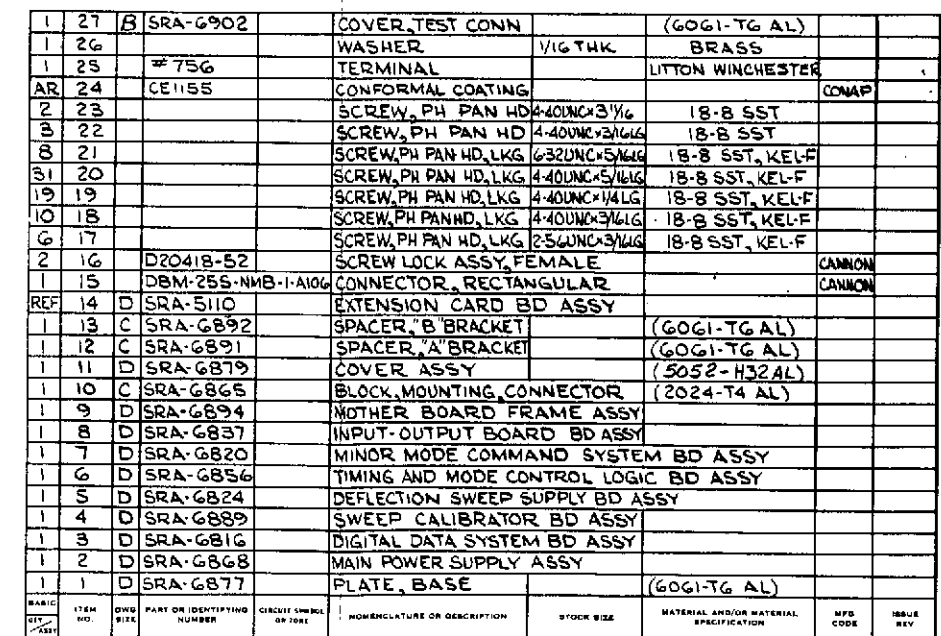 1 27 B SRA-6902 COVER, TEST CONN (6061-T6 AL)
1 26 WASHER 1/16 THK BRASS
1 25 #756 TERMINAL LITTON WINCHESTER
AR 24 CE1155 CONFORMAL COATING CONAP
2 23 SCREW, PH PAN HD 4-40UNC×3 1/16 18-8 SST
3 22 SCREW, PH PAN HD 4-40UNC×3/16LG 18-8 SST
8 21 SCREW, PH PAN HD, LKG 6-32UNC×5/16LG 18-8 SST, KEL-F
31 20 SCREW, PH PAN HD, LKG 4-40UNC×5/16LG 18-8 SST, KEL-F
19 19 SCREW, PH PAN HD, LKG 4-40UNC×1/4 LG 18-8 SST, KEL-F
10 18 SCREW, PH PAN HD, LKG 4-40UNC×3/16LG 18-8 SST, KEL-F
6 17 SCREW, PH PAN HD, LKG 2-56UNC×3/16LG 18-8 SST, KEL-F
2 16 D20418-52 SCREW LOCK ASSY, FEMALE CANNON
1 15 DBM-25S-NMB-1-A106 CONNECTOR, RECTANGULAR CANNON
REF 14 D SRA-5110 EXTENSION CARD BD ASSY
1 13 C SRA-6892 SPACER, "B" BRACKET (6061-T6 AL)
1 12 C SRA-6891 SPACER, "A" BRACKET (6061-T6 AL)
1 11 D SRA-6879 COVER ASSY (5052-H32 AL)
1 10 C SRA-6865 BLOCK, MOUNTING, CONNECTOR (2024-T4 AL)
1 9 D SRA-6894 MOTHER BOARD FRAME ASSY
1 8 D SRA-6837 INPUT-OUTPUT BOARD BD ASSY
1 7 D SRA-6820 MINOR MODE COMMAND SYSTEM BD ASSY
1 6 D SRA-6856 TIMING AND MODE CONTROL LOGIC BD ASSY
1 5 D SRA-6824 DEFLECTION SWEEP SUPPLY BD ASSY
1 4 D SRA-6889 SWEEP CALIBRATOR BD ASSY
1 3 D SRA-6816 DIGITAL DATA SYSTEM BD ASSY
1 2 D SRA-6868 MAIN POWER SUPPLY ASSY
1 1 D SRA-6877 PLATE, BASE (6061-T6 AL)
BASIC QTY/ASSY ITEM NO. DWG SIZE PART OR IDENTIFYING NUMBER CIRCUIT SYMBOL OR ZONE NOMENCLATURE OR DESCRIPTION STOCK SIZE MATERIAL AND/OR MATERIAL SPECIFICATION MFG CODE ISSUE REV